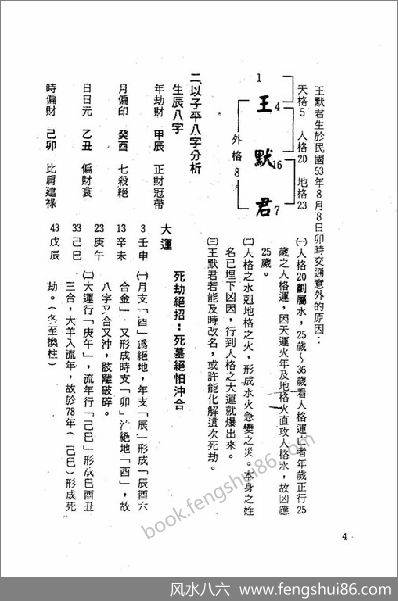 王默君生於民國53年8月8日卯時交通意外的原因：
天格5 人格20 地格23
1
王 4
默 16
君 7
外格8
㈠人格20劃屬水，25歲～36歲看人格運，亡者年歲正行25
歲之人格運，因天運火年及地格火直攻人格水，故因應
25歲。
㈡人格之水剋地格之火，形成水火急變之災。本身之姓
名已埋下凶因，行到人格之大運就爆出來。
㈢王默君若能及時改名，或許能化解這次死劫。
二、以子平八字分析
生辰八字
年劫財 甲辰 正財冠帶
月偏印 癸酉 七殺絕
日日元 乙丑 偏財衰
時偏財 己卯 比肩建祿
大運
3壬申
13辛未
23庚午
33己巳
43戊辰
死劫絕招：死墓絕怕沖合
㈠月支「酉」爲絕地，年支「辰」形成「辰酉六
合金」，又形成時支「卯」沖絕地「酉」，故
八字又合又沖，該離破碎。
㈡大運行「庚午」，流年行「己巳」形成巳酉丑
三合，大羊入流年，故於78年（己巳）形成死
劫。（冬至換柱）
4
book.fengshui86.com
风水八六 - www.fengshui86.com